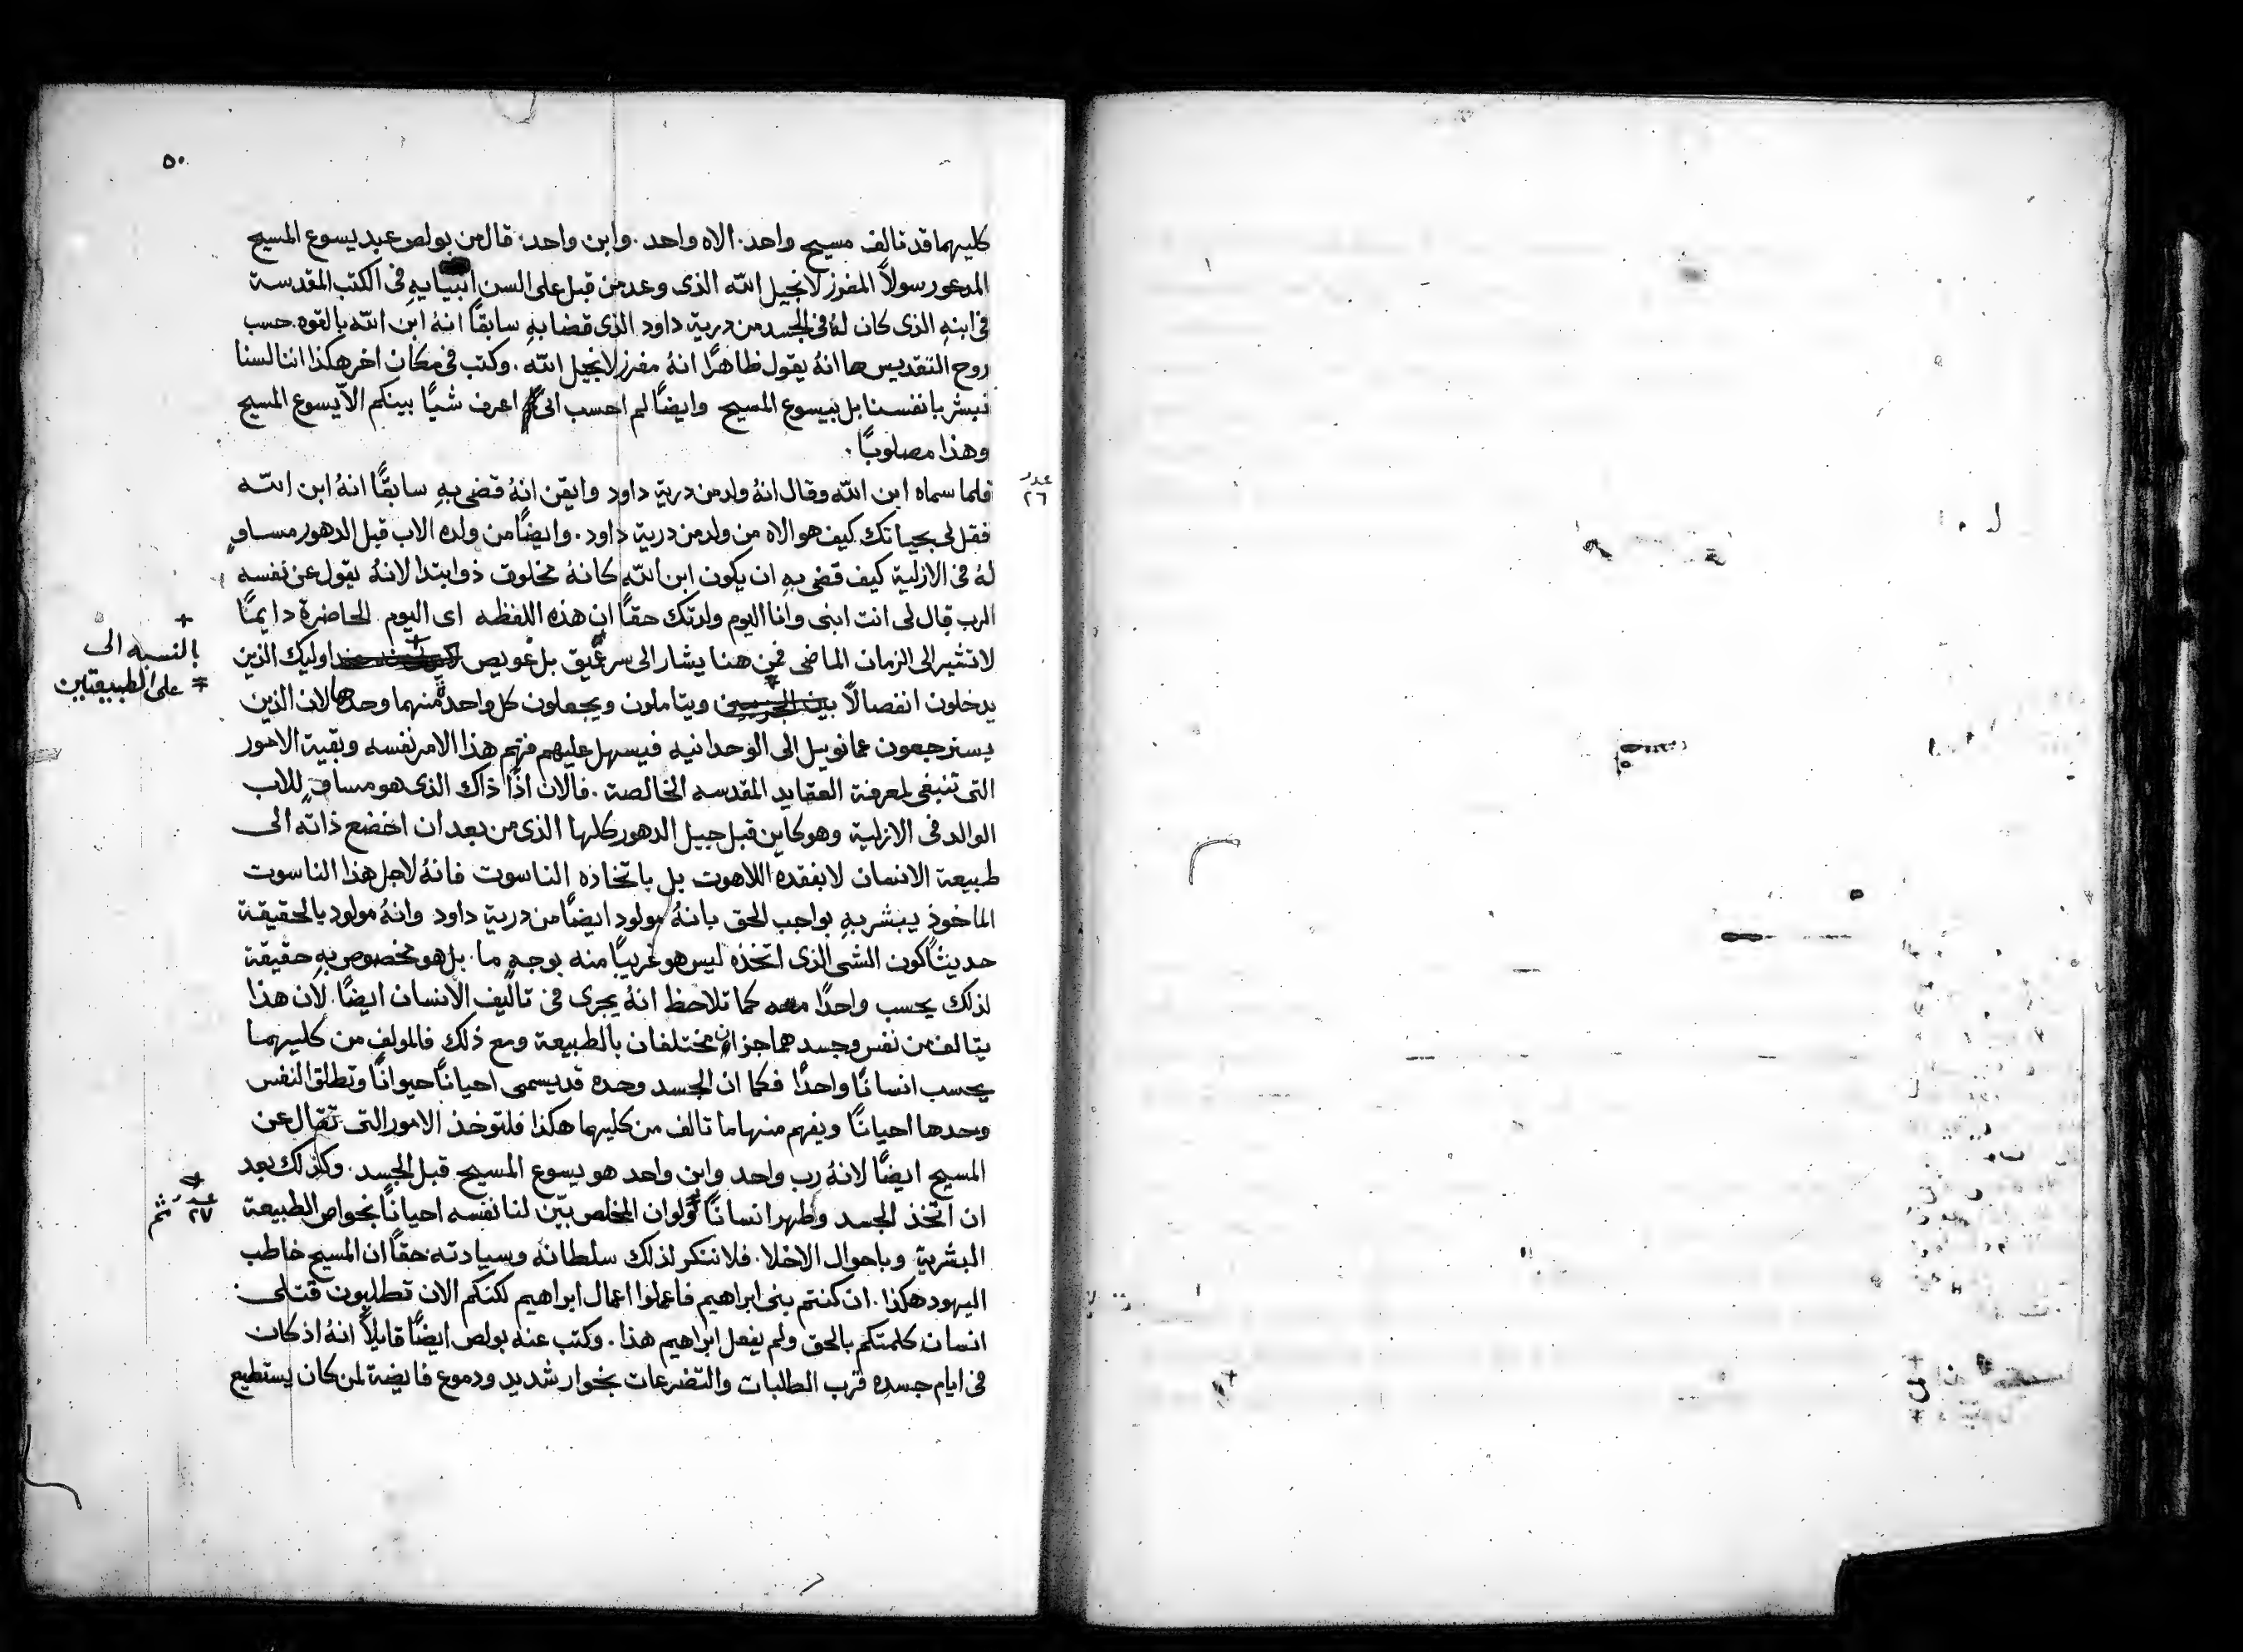 ٥٠
كليهما قد تالف مسيح واحد. الاه واحد. وابن واحد. قال من بولص عبد يسوع المسيح
المدعو رسولاً المفرز لانجيل الله الذى وعد من قبل على السن انبيايهِ فى الكتب المقدسة
فى ابنهِ الذى كان لهُ فى الجسد من درية داود الذى قضا بهِ سابقاً انهُ ابن الله بالقوه حسب
روح التقديس ها انهُ يقول ظاهرًا انهُ مفرز لانجيل الله. وكتب فى مكان اخر هكذا اننا لسنا
نبشر بانفسنا بل بيسوع المسيح وايضًا لم احسب انى اعرف شيًا بينكم الاّ يسوع المسيح
وهذا مصلوبًا.
عدد ٢٦
فلما سماه ابن الله وقال انهُ ولد من درية داود وايقن انهُ قضى بهِ سابقًا انهُ ابن الله
فقل لى بحياتك كيف هو الاه من ولد من درية داود. وايضًا من ولده الاب قبل الدهور مساوٍ
لهُ فى الازلية كيف قضى بهِ ان يكون ابن الله كانهُ مخلوق ذو ابتدا لانهُ يقول عن نفسه
الرب قال لى انت ابنى وانا اليوم ولدتك حقًا ان هذه اللفظه اى اليوم الحاضرة دايمًا
لا تشير الى الزمان الماضى فمن هنا يشار الى سر عميق بل عويص اوليك الذين
+ بالنسبه الى
يدخلون انفصالاً ويتاملون ويجعلون كل واحدة منهما وحدها لان الذين
على الطبيعتين
يسترجعون عمانوييل الى الوحدانيه فيسهل عليهم فهم هذا الامر نفسه وبقية الامور
التى تنبغى لمعرفة العقايد المقدسه الخالصة. فالان اذًا ذاك الذى هو مساوٍ للاب
الوالد فى الازلية وهو كاين قبل جبيل الدهور كلها الذى من بعد ان اخضع ذاته الى
طبيعة الانسان لا بفقده اللاهوت بل باتخاذه الناسوت فانهُ لاجل هذا الناسوت
الماخوذ يبشر بهِ بواجب الحق بانهُ مولود ايضًا من درية داود وانهُ مولود بالحقيقة
حديثًا كون الشى الذى اتخذه ليس هو غريبًا منه بوجهٍ ما. بل هو مخصوص بهِ حقيقة
لذلك يحسب واحدًا معه كما تلاحظ انهُ يجرى فى تاليف الانسان ايضًا. لان هذا
يتالف من نفس وجسد هما جزان مختلفان بالطبيعة ومع ذلك فالمولف من كليهما
يحسب انسانًا واحدًا فكما ان الجسد وحده قد يسمى احيانًا حيوانًا وتطلق النفس
وحدها احيانًا ويفهم منها ما تالف من كليهما هكذا فلتوخذ الامور التى تقال عن
المسيح ايضًا لانهُ رب واحد وابن واحد هو يسوع المسيح قبل الجسد. وكذلك بعد
ان اتخذ الجسد وظهر انسانًا ولوان المخلص بيّن لنا نفسه احيانًا بخواص الطبيعة
عدد ٢٧ ثم
البشرية وباحوال الاخلا. فلا ننكر لذلك سلطانه وسيادته حقًا ان المسيح خاطب
اليهود هكذا. ان كنتم بنى ابراهيم فاعملوا اعمال ابراهيم لكنكم الان تطلبون قتلى
انسان كلمتكم بالحق ولم يفعل ابراهيم هذا. وكتب عنه بولص ايضًا قايلاً انهُ اذ كان
فى ايام جسده قرب الطلبات والتضرعات بخوار شديد ودموع فايضة لمن كان يستطيع